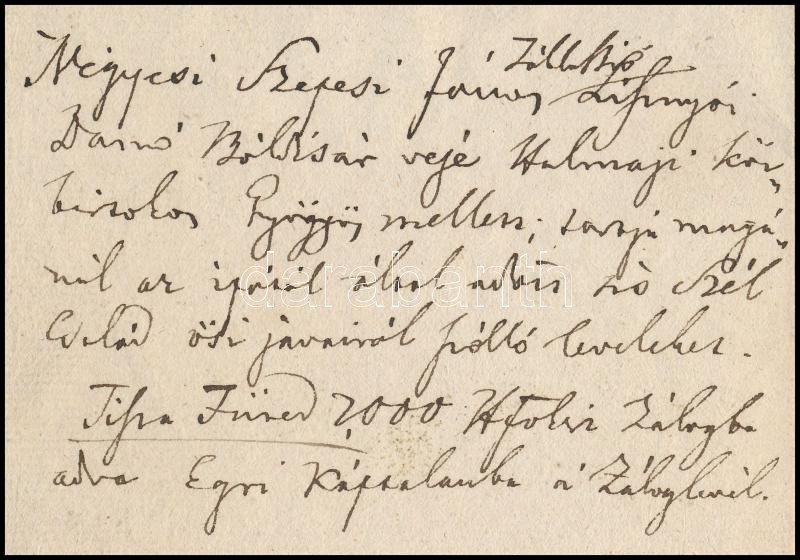 Négyesi Szepesi János
Darnó Boldisár veje Halmaji köz-
birtokos Gyöngyös mellett; tartja magá-
nál az ipától által adott szó Szél
Család ősi javairól szólló leveleket.
Tisza Füred 2,000 Hfolri Zálogba
adva Egri Káptalanba a Záloglevél.
darabanth